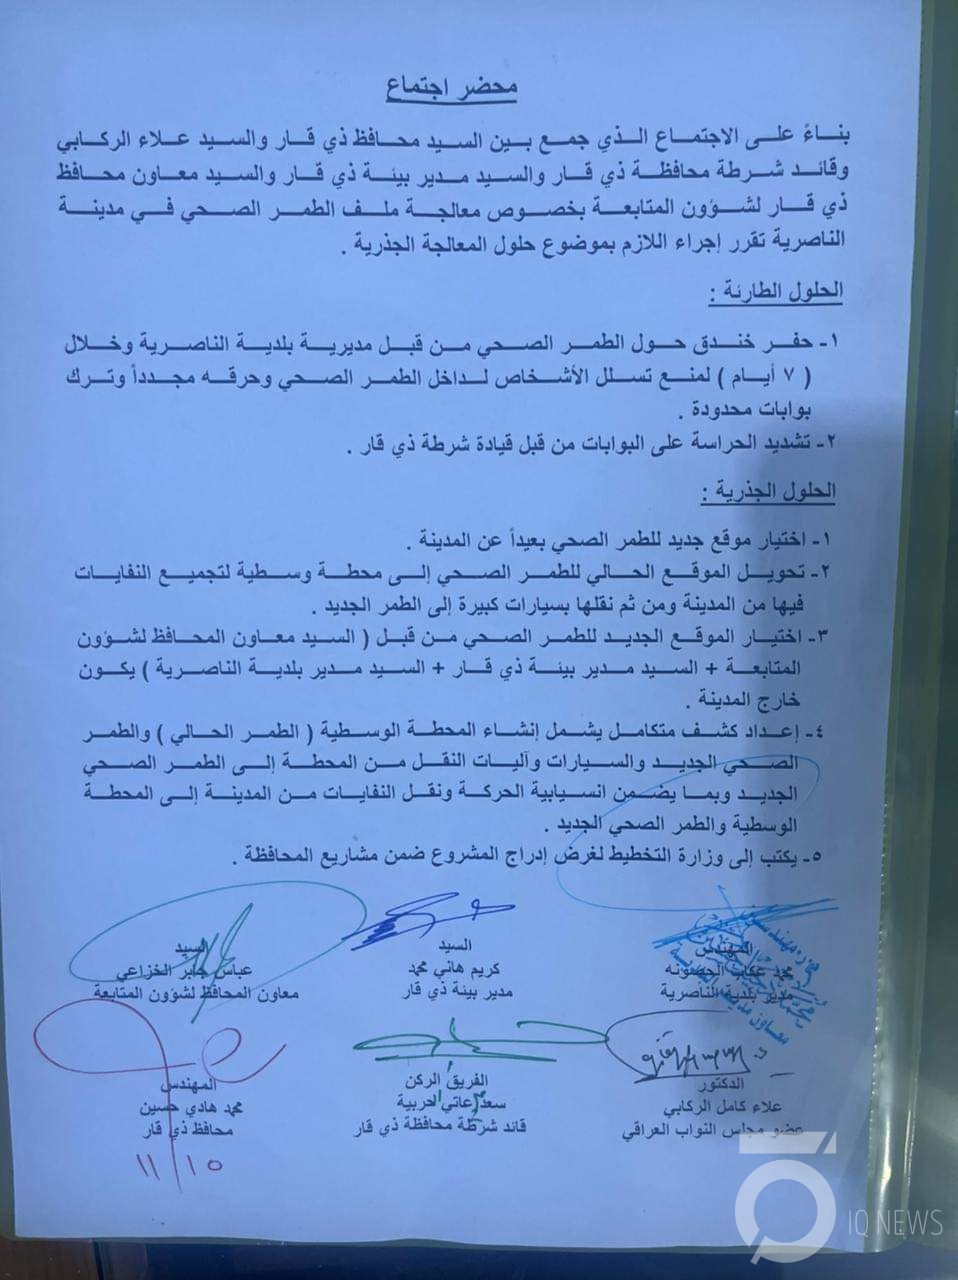 محضر اجتماع
بناءً على الاجتماع الذي جمع بين السيد محافظ ذي قار والسيد علاء الركابي
وقائد شرطة محافظة ذي قار والسيد مدير بيئة ذي قار والسيد معاون محافظ
ذي قار لشؤون المتابعة بخصوص معالجة ملف الطمر الصحي في مدينة
الناصرية تقرر إجراء اللازم بموضوع حلول المعالجة الجذرية .
الحلول الطارئة :
١- حفر خندق حول الطمر الصحي من قبل مديرية بلدية الناصرية وخلال
( ٧ أيام ) لمنع تسلل الأشخاص لداخل الطمر الصحي وحرقه مجدداً وترك
بوابات محدودة .
٢- تشديد الحراسة على البوابات من قبل قيادة شرطة ذي قار .
الحلول الجذرية :
١- اختيار موقع جديد للطمر الصحي بعيداً عن المدينة .
٢- تحويل الموقع الحالي للطمر الصحي إلى محطة وسطية لتجميع النفايات
فيها من المدينة ومن ثم نقلها بسيارات كبيرة إلى الطمر الجديد .
٣- اختيار الموقع الجديد للطمر الصحي من قبل ( السيد معاون المحافظ لشؤون
المتابعة + السيد مدير بيئة ذي قار + السيد مدير بلدية الناصرية ) يكون
خارج المدينة .
٤- إعداد كشف متكامل يشمل إنشاء المحطة الوسطية ( الطمر الحالي ) والطمر
الصحي الجديد والسيارات وآليات النقل من المحطة إلى الطمر الصحي
الجديد وبما يضمن انسيابية الحركة ونقل النفايات من المدينة إلى المحطة
الوسطية والطمر الصحي الجديد .
٥- يكتب إلى وزارة التخطيط لغرض إدراج المشروع ضمن مشاريع المحافظة .
المهندس السيد السيد
محمد عكاب الحصونه كريم هاني محمد عباس جابر الخزاعي
مدير بلدية الناصرية مدير بيئة ذي قار معاون المحافظ لشؤون المتابعة
الدكتور الفريق الركن المهندس
علاء كامل الركابي سعد عاتي الحربية محمد هادي حسين
عضو مجلس النواب العراقي قائد شرطة محافظة ذي قار محافظ ذي قار
١١/١٥
IQ NEWS